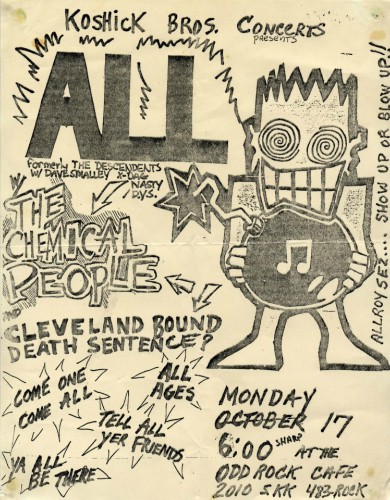 KOSHICK BROS. CONCERTS
PRESENTS
ALL
formerly THE DESCENDENTS
W/ DAVE SMALLEY X-DAG
NASTY
W/
THE
CHEMICAL
PEOPLE
AND
CLEVELAND BOUND
DEATH SENTENCE?
COME ONE
COME ALL
ALL
AGES
TELL ALL
YER FRIENDS
YA ALL
BE THERE
MONDAY
OCTOBER 17
6:00 SHARP AT THE
ODD ROCK CAFE
2010 S KK 483-ROCK
ALLROY SEZ... SHOW UP OR BLOW UP!!